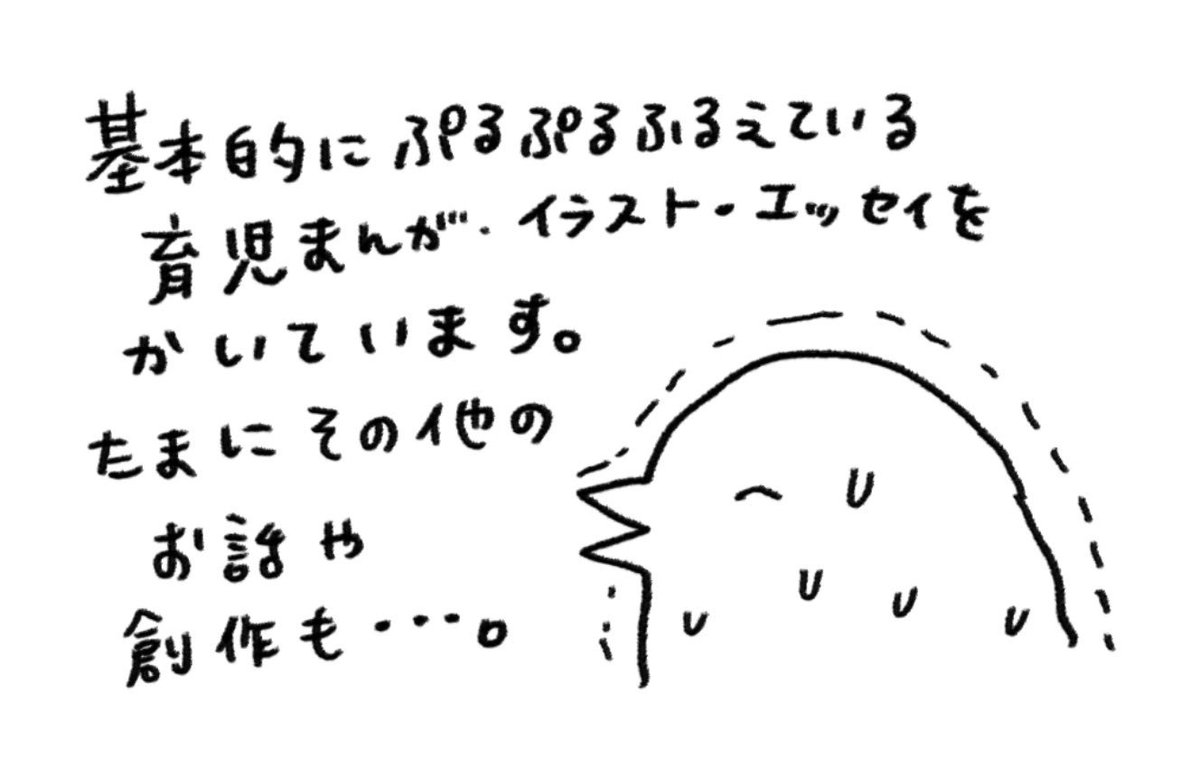 基本的にぷるぷるふるえている
育児まんが・イラスト・エッセイを
かいています。
たまにその他の
お話や
創作も・・・。